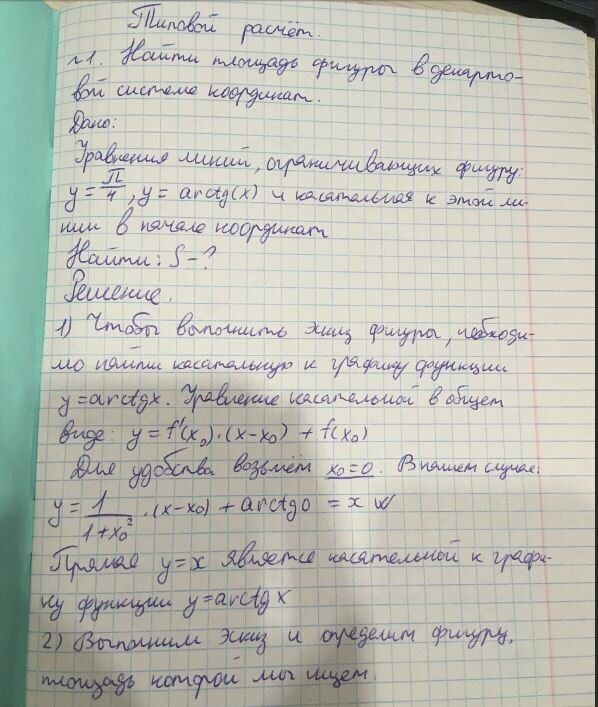 Типовой расчёт.
№1. Найти площадь фигуры в декарто-
вой системе координат.
Дано:
Уравнения линий, ограничивающих фигуру:
y = π/4, y = arctg(x) и касательная к этой ли-
нии в начале координат
Найти: S - ?
Решение.
1) Чтобы выполнить эскиз фигуры, необходи-
мо найти касательную к графику функции
y = arctgx. Уравнение касательной в общем
виде: y = f'(x₀)·(x-x₀) + f(x₀)
Для удобства возьмём x₀=0. В нашем случае:
y = 1/(1+x₀²) ·(x-x₀) + arctg0 = x
Прямая y=x является касательной к графи-
ку функции y=arctgx
2) Выполним эскиз и определим фигуру,
площадь которой мы ищем.